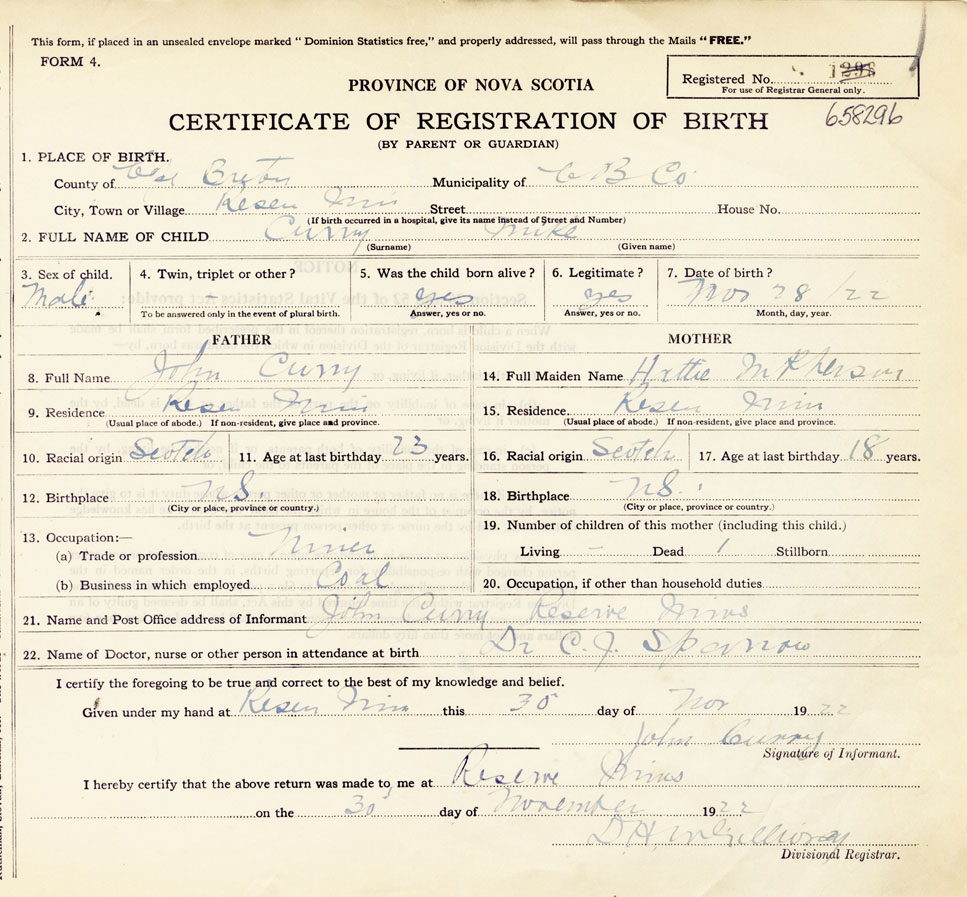 This form, if placed in an unsealed envelope marked " Dominion Statistics free," and properly addressed, will pass through the Mails "FREE."
FORM 4.
PROVINCE OF NOVA SCOTIA
Registered No. 1296
For use of Registrar General only.
658296
CERTIFICATE OF REGISTRATION OF BIRTH
(BY PARENT OR GUARDIAN)
1. PLACE OF BIRTH.
County of Cape Breton Municipality of C B Co
City, Town or Village Reserv Mines Street House No.
(If birth occurred in a hospital, give its name instead of Street and Number)
2. FULL NAME OF CHILD Curry Mike
(Surname) (Given name)
3. Sex of child. 4. Twin, triplet or other ? 5. Was the child born alive ? 6. Legitimate ? 7. Date of birth ?
Male — yes yes Nov 28 /22
To be answered only in the event of plural birth. Answer, yes or no. Answer, yes or no. Month, day, year.
FATHER MOTHER
8. Full Name John Curry 14. Full Maiden Name Hattie McPherson
9. Residence Reserv Mines 15. Residence. Reserv Mines
(Usual place of abode.) If non-resident, give place and province. (Usual place of abode.) If non-resident, give place and province.
10. Racial origin Scotch 11. Age at last birthday 23 years. 16. Racial origin Scotch 17. Age at last birthday 18 years.
12. Birthplace N.S. 18. Birthplace N.S.
(City or place, province or country.) (City or place, province or country.)
13. Occupation:— 19. Number of children of this mother (including this child.)
(a) Trade or profession Miner Living — Dead 1 Stillborn
(b) Business in which employed Coal 20. Occupation, if other than household duties.
21. Name and Post Office address of Informant John Curry Reserve Mines
22. Name of Doctor, nurse or other person in attendance at birth Dr C. J. Sparrow
I certify the foregoing to be true and correct to the best of my knowledge and belief.
Given under my hand at Reserv Mines this 30 day of Nov 1922
John Curry
Signature of Informant.
I hereby certify that the above return was made to me at Reserve Mines
on the 30 day of November 1922
D H McGillivray
Divisional Registrar.